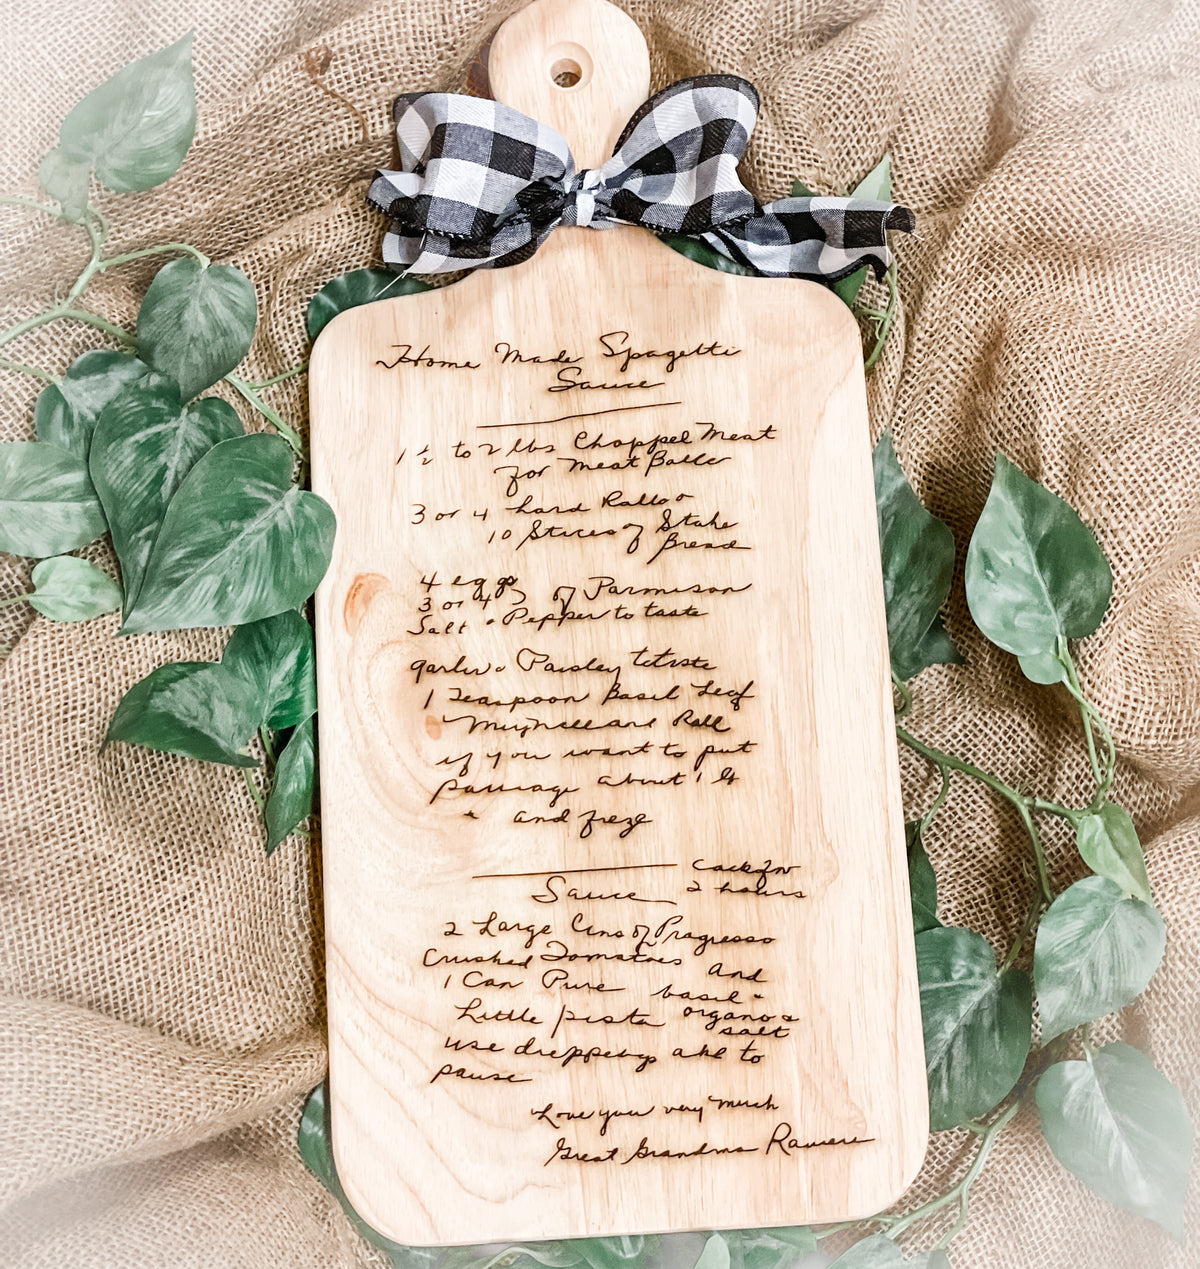 Home Made Spagetti
Sauce
1 ½ to 2 lbs Chopped Meat
for Meat Balls
3 or 4 hard Rolls or
10 Slices of Stale
Bread
4 eggs
3 or 4 of Parmison
Salt & Pepper to taste
garlic & Parsley to taste
1 Teaspoon Basil Leaf
and Roll
if you want to put
about 1 lb
and freze
Sauce
Cook for
2 hours
2 Large Cans of Progresso
Crushed Tomatoes and
1 Can Pure basil &
Little organo &
salt
use to
Love you very much
Great Grandma